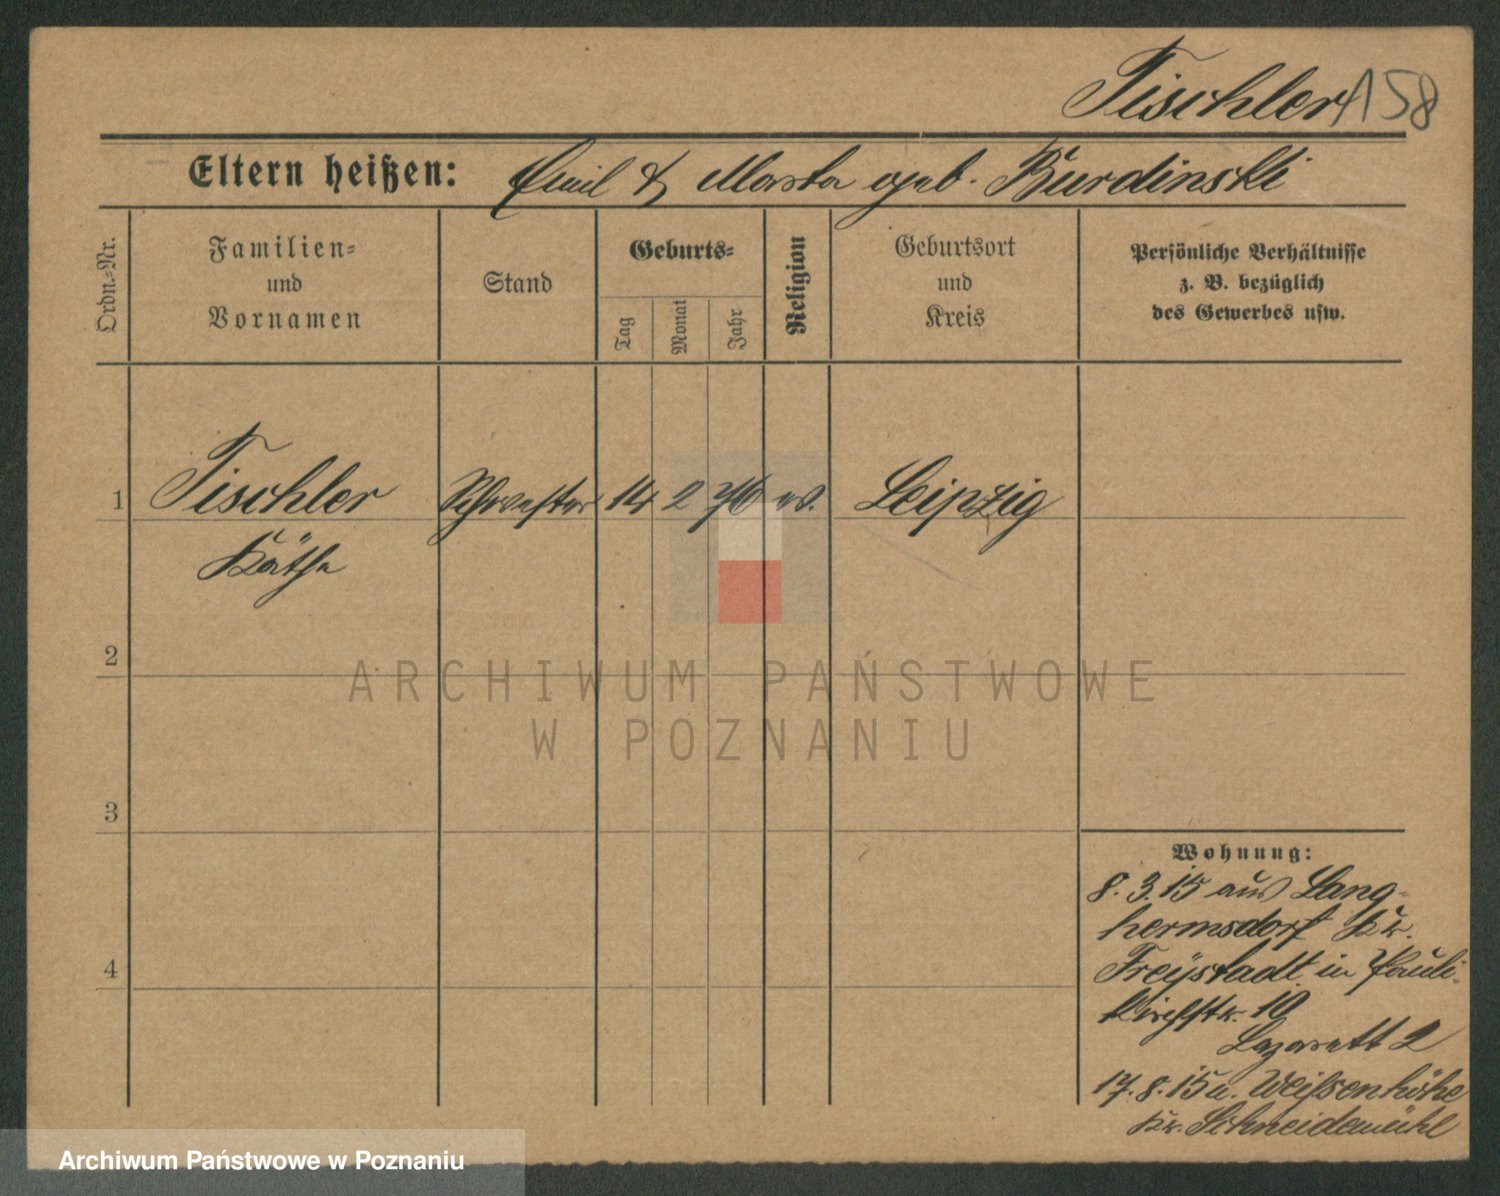 Tischler 158
Eltern heißen: Emil & Marta geb. Burdinski
Ordn.-Nr.
Familien-
und
Vornamen
Stand
Geburts-
Tag
Monat
Jahr
Religion
Geburtsort
und
Kreis
Persönliche Verhältnisse
z. B. bezüglich
des Gewerbes usw.
1 Tischler Schwester 14 2 76 ev. Leipzig
Käthe
2
ARCHIWUM PAŃSTWOWE
W POZNANIU
3
Wohnung:
8.3.15 aus Lang-
hermsdorf Kr.
4
Freystadt in Pauli-
kirchstr. 10
Lazarett 2
17.8.15 n. Weißenhöhe
Kr. Schneidemühl
Archiwum Państwowe w Poznaniu